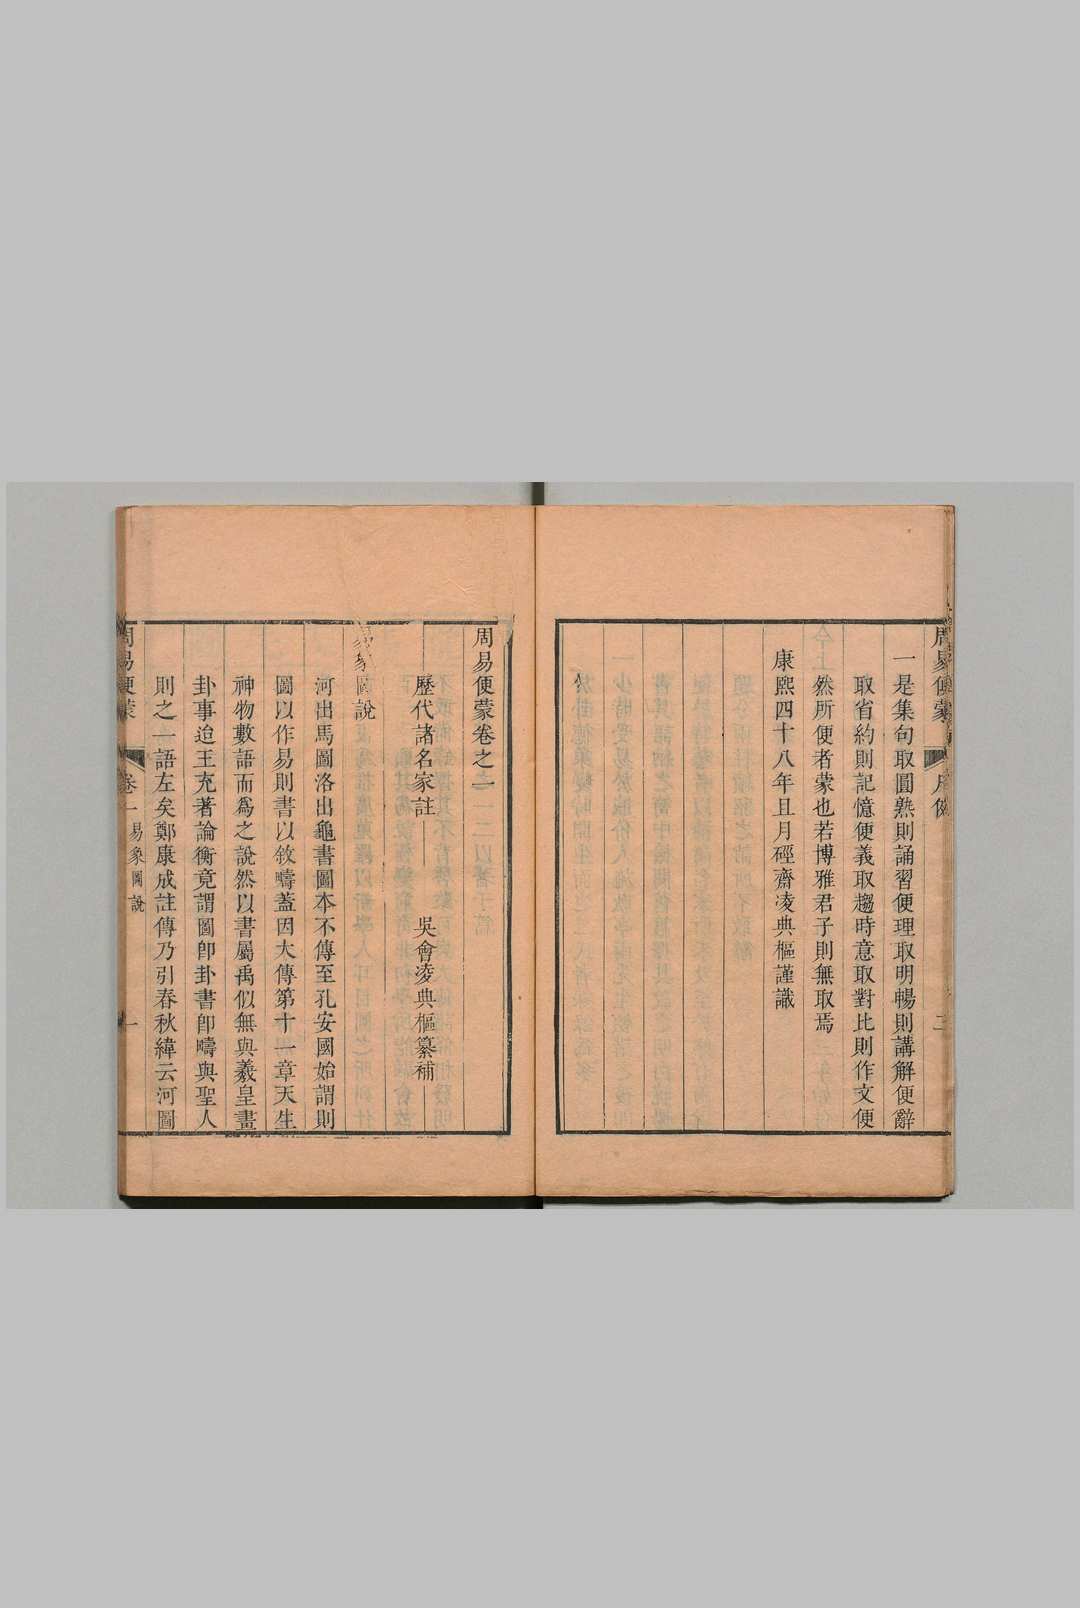 周易便蒙
凡例
三
一是集句取圓熟則誦習便理取明暢則講解便辭
取省約則記憶便義取趨時意取對比則作文便
然所便者蒙也若博雅君子則無取焉
康熙四十八年且月硜齋凌典樞謹識
周易便蒙卷之一
歷代諸名家註 吳會凌典樞纂補
易象圖說
河出馬圖洛出龜書圖本不傳至孔安國始謂則
圖以作易則書以敘疇蓋因大傳第十一章天生
神物數語而爲之說然以書屬禹似無與羲皇畫
卦事迨王充著論衡竟謂圖卽卦書卽疇與聖人
則之一語左矣鄭康成註傳乃引春秋緯云河圖
周易便蒙
卷一
易象圖說
一